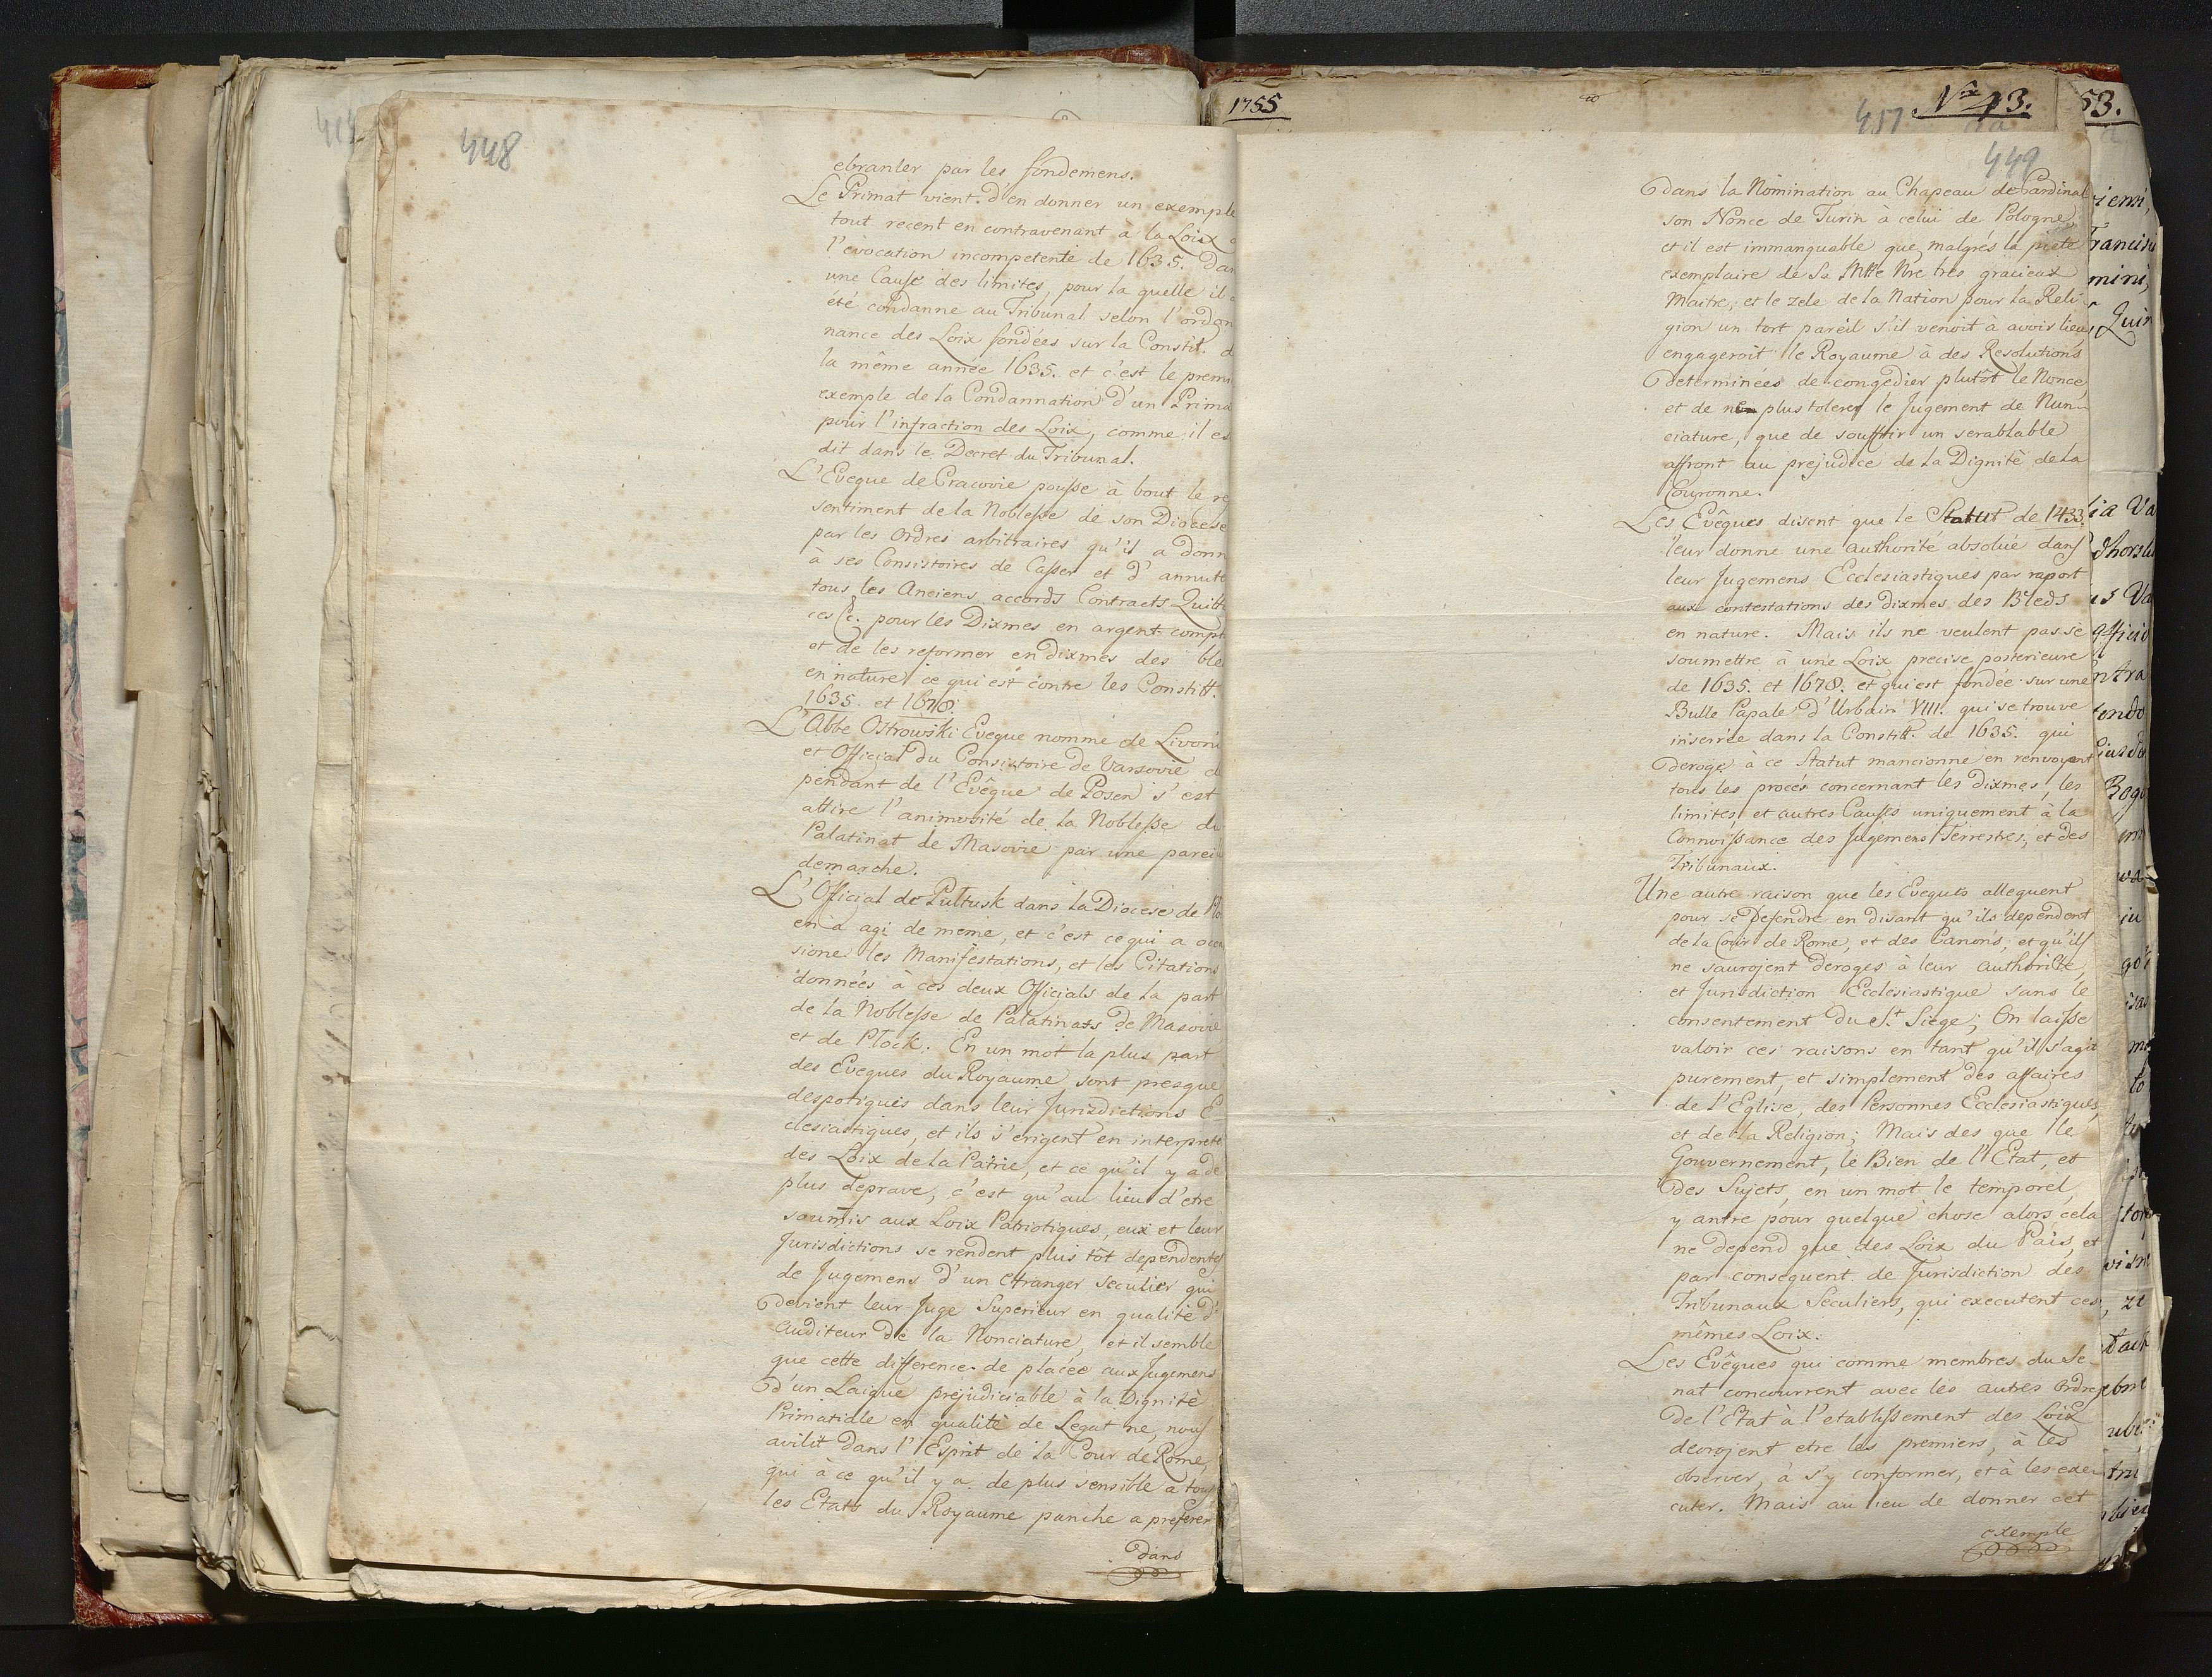 448
ebranler par les fondemens.
Le Primat vient d'en donner un exemple
tout recent en contravenant à la Loix
l'evocation incompetente de 1635. dan
une Cause des limites, pour la quelle il a
été condanne au Tribunal selon l'ordon
nance des Loix fondées sur la Constit. d
la même année 1635. et c'est le premi
exemple de la Condannation d'un Prima
pour l'infraction des Loix, comme il es
dit dans le Decret du Tribunal.
L'Eveque de Cracovie pousse à bout le re
sentiment de la Noblesse de son Diocese
par les Ordres arbitraires qu'il a donn
à ses Consistoires de Casser et d'annull
tous les Anciens accords Contracts Quitt
ces &c. pour les Dixmes en argent compt
et de les reformer en dixmes des ble
en nature ce qui est contre les Constitt.
1635. et 1678.
L'Abbe Ostrowski Eveque nommé de Livoni
et Official du Consistoire de Varsovie de
pendant de l'Evêque de Posen s'est
attire l'animosité de la Noblesse du
Palatinat de Masovie par une pareil
demarche.
L'Official de Pultusk dans la Diocese de Plo
en a agi de meme, et c'est ce qui a occa
sione les Manifestations, et les Citations
données à ces deux Officials de la part
de la Noblesse de Palatinats de Masovie
et de Plock. En un mot la plus part
des Eveques du Royaume sont presque
despotiques dans leur Jurisdictions E
clesiastiques, et ils s'erigent en interprete
des Loix de la Patrie, et ce qu'il y a de
plus deprave, c'est qu'au lieu d'etre
soumis aux Loix Patriotiques, eux et leur
Jurisdictions se rendent plus tôt dependentes
de Jugemens d'un etranger seculier qui
devient leur Juge Superieur en qualité d'
Auditeur de la Nonciature, et il semble
que cette difference de placée aux Jugemens
d'un Laique prejudiciable à la Dignité
Primatialle en qualité de Legat ne, nous
avilit dans l'Esprit de la Cour de Rome,
qui à ce qu'il y a de plus sensible a tous
les Etats du Royaume panche a preferer
dans
1755
451 Nro 43.
53.
449
dans la Nomination au Chapeau de Cardinal
son Nonce de Turin à celui de Pologne,
et il est immanquable que, malgrés la pieté
exemplaire de Sa Mtte Nre tres gracieux
Maitre, et le zele de la Nation pour la Reli
gion un tort pareil s'il venoit à avoir lieu,
engageroit le Royaume à des Resolutions
determinées de congedier plutôt le Nonce
et de ne plus tolerer le Jugement de Nun-
ciature, que de souffrir un semblable
affront au prejudice de la Dignité de la
Couronne.
Les Evêques disent que le Statut de 1433.
leur donne une authorité absolue dans
leur Jugemens Ecclesiastiques par raport
aux contestations des dixmes des Bleds
en nature. Mais ils ne veulent pas se
soumettre à une Loix precise posterieure
de 1635. et 1678. et qui est fondée sur une
Bulle Papale d'Urbain VIII. qui se trouve
inserrée dans la Constitt. de 1635. qui
deroge à ce Statut mancionné en renvoyant
tous les procés concernant les dixmes, les
limites, et autres Causes uniquement à la
Connoissance des Jugemens Terrestres, et des
Tribunaux.
Une autre raison que les Eveques alleguent
pour se defendre en disant qu'ils dependent
de la Cour de Rome, et des Canons, et qu'ils
ne saurojent deroger à leur authorité,
et Jurisdiction Ecclesiastique sans le
consentement du St. Siege; On laisse
valoir ces raisons en tant qu'il s'agit
purement, et simplement des affaires
de l'Eglise, des Personnes Ecclesiastiques,
et de la Religion; Mais des que le
Gouvernement, le Bien de l'Etat, et
des Sujets, en un mot le temporel,
y antre pour quelque chose alors cela
ne depend que des Loix du Païs, et
par consequent de Jurisdiction des
Tribunaux Seculiers, qui executent ces
mêmes Loix.
Les Evêques qui comme membres du Se
nat concourrent avec les autres Ordres
de l'Etat à l'etablissement des Loix
devrojent etre les premiers, à les
observer, à s'y conformer, et à les exe
cuter. Mais au lieu de donner cet
exemple